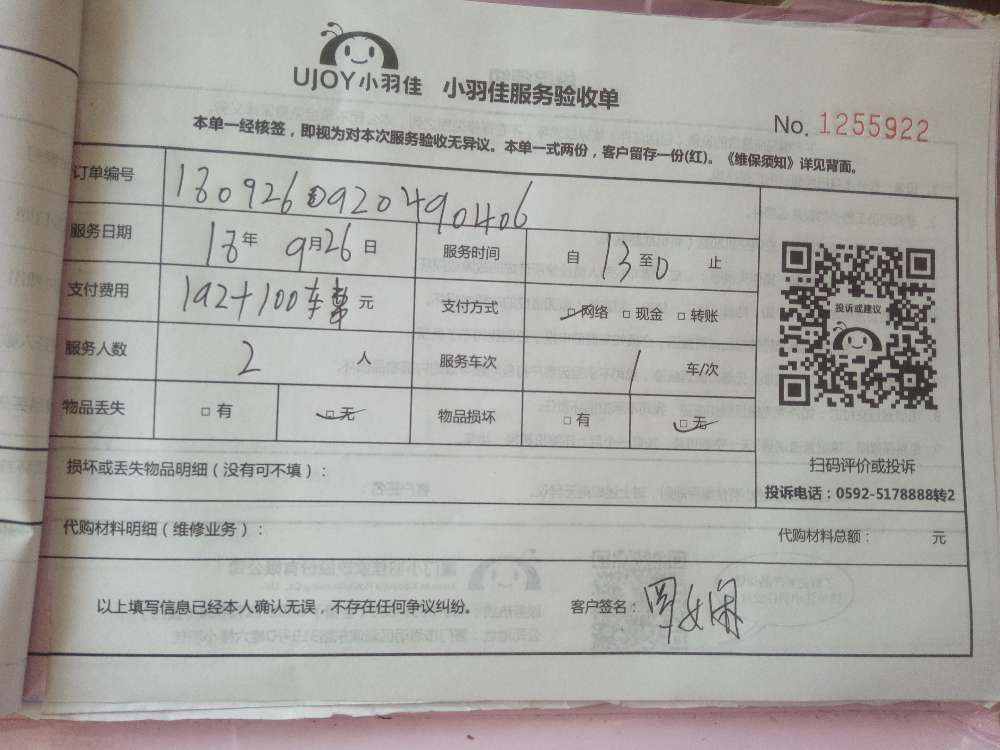 UJOY小羽佳 小羽佳服务验收单
No. 1255922
本单一经核签，即视为对本次服务验收无异议。本单一式两份，客户留存一份(红)。《维保须知》详见背面。
订单编号 1809260920490406
服务日期 18年 9月26日 服务时间 自 13 至 0 止
支付费用 192+100车费 元 支付方式 ☑网络 □现金 □转账
服务人数 2 人 服务车次 1 车/次
物品丢失 □有 ☑无 物品损坏 □有 ☑无
投诉或建议
扫码评价或投诉
投诉电话：0592-5178888转2
损坏或丢失物品明细（没有可不填）：
代购材料明细（维修业务）： 代购材料总额： 元
以上填写信息已经本人确认无误，不存在任何争议纠纷。 客户签名：